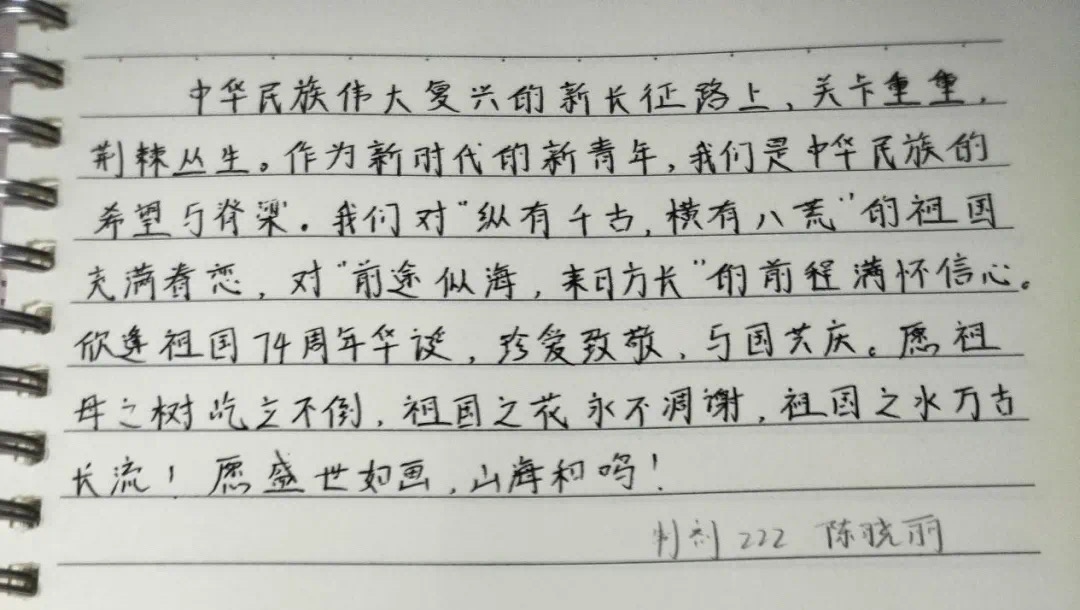 中华民族伟大复兴的新长征路上，关卡重重，
荆棘丛生。作为新时代的新青年，我们是中华民族的
希望与脊梁。我们对“纵有千古，横有八荒”的祖国
充满眷恋，对“前途似海，来日方长”的前程满怀信心。
欣逢祖国74周年华诞，珍爱致敬，与国共庆。愿祖
母之树屹立不倒，祖国之花永不凋谢，祖国之水万古
长流！愿盛世如画，山海和鸣！
制剂222 陈晓丽